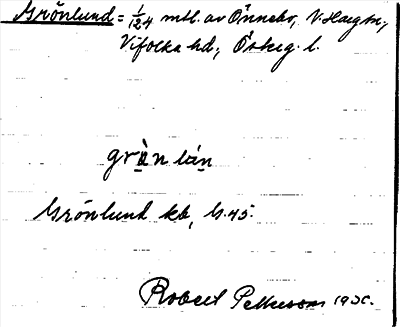 Grönlund = 1/124 mtl. av Önnebo, V. Harg sn,
Vifolka hd, Östeg. l.
grö̀n lún
Grönlund kb, G.45.
Robert Pettersson 1930.